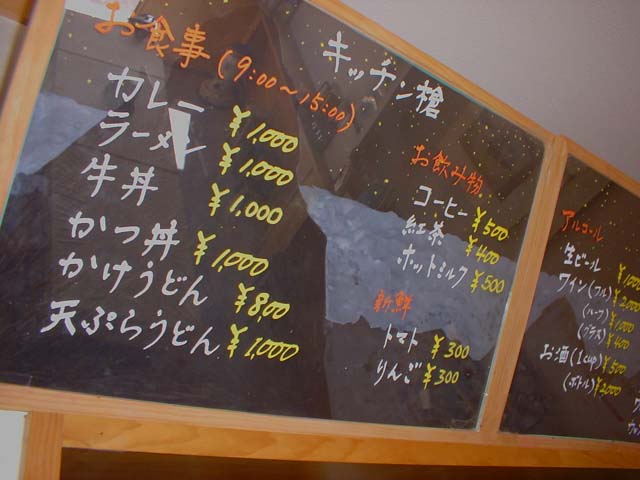 お食事 (9:00~15:00)
カレー ¥1,000
ラーメン ¥1,000
牛丼 ¥1,000
かつ丼 ¥1,000
かけうどん ¥800
天ぷらうどん ¥1,000
キッチン槍
お飲み物
コーヒー ¥500
紅茶 ¥400
ホットミルク ¥500
新鮮
トマト ¥300
りんご ¥300
アルコール
生ビール
ワイン(フル) ¥2,000
(ハーフ) ¥1,000
(グラス) ¥400
お酒(1cup) ¥500
(ボトル) ¥2,000